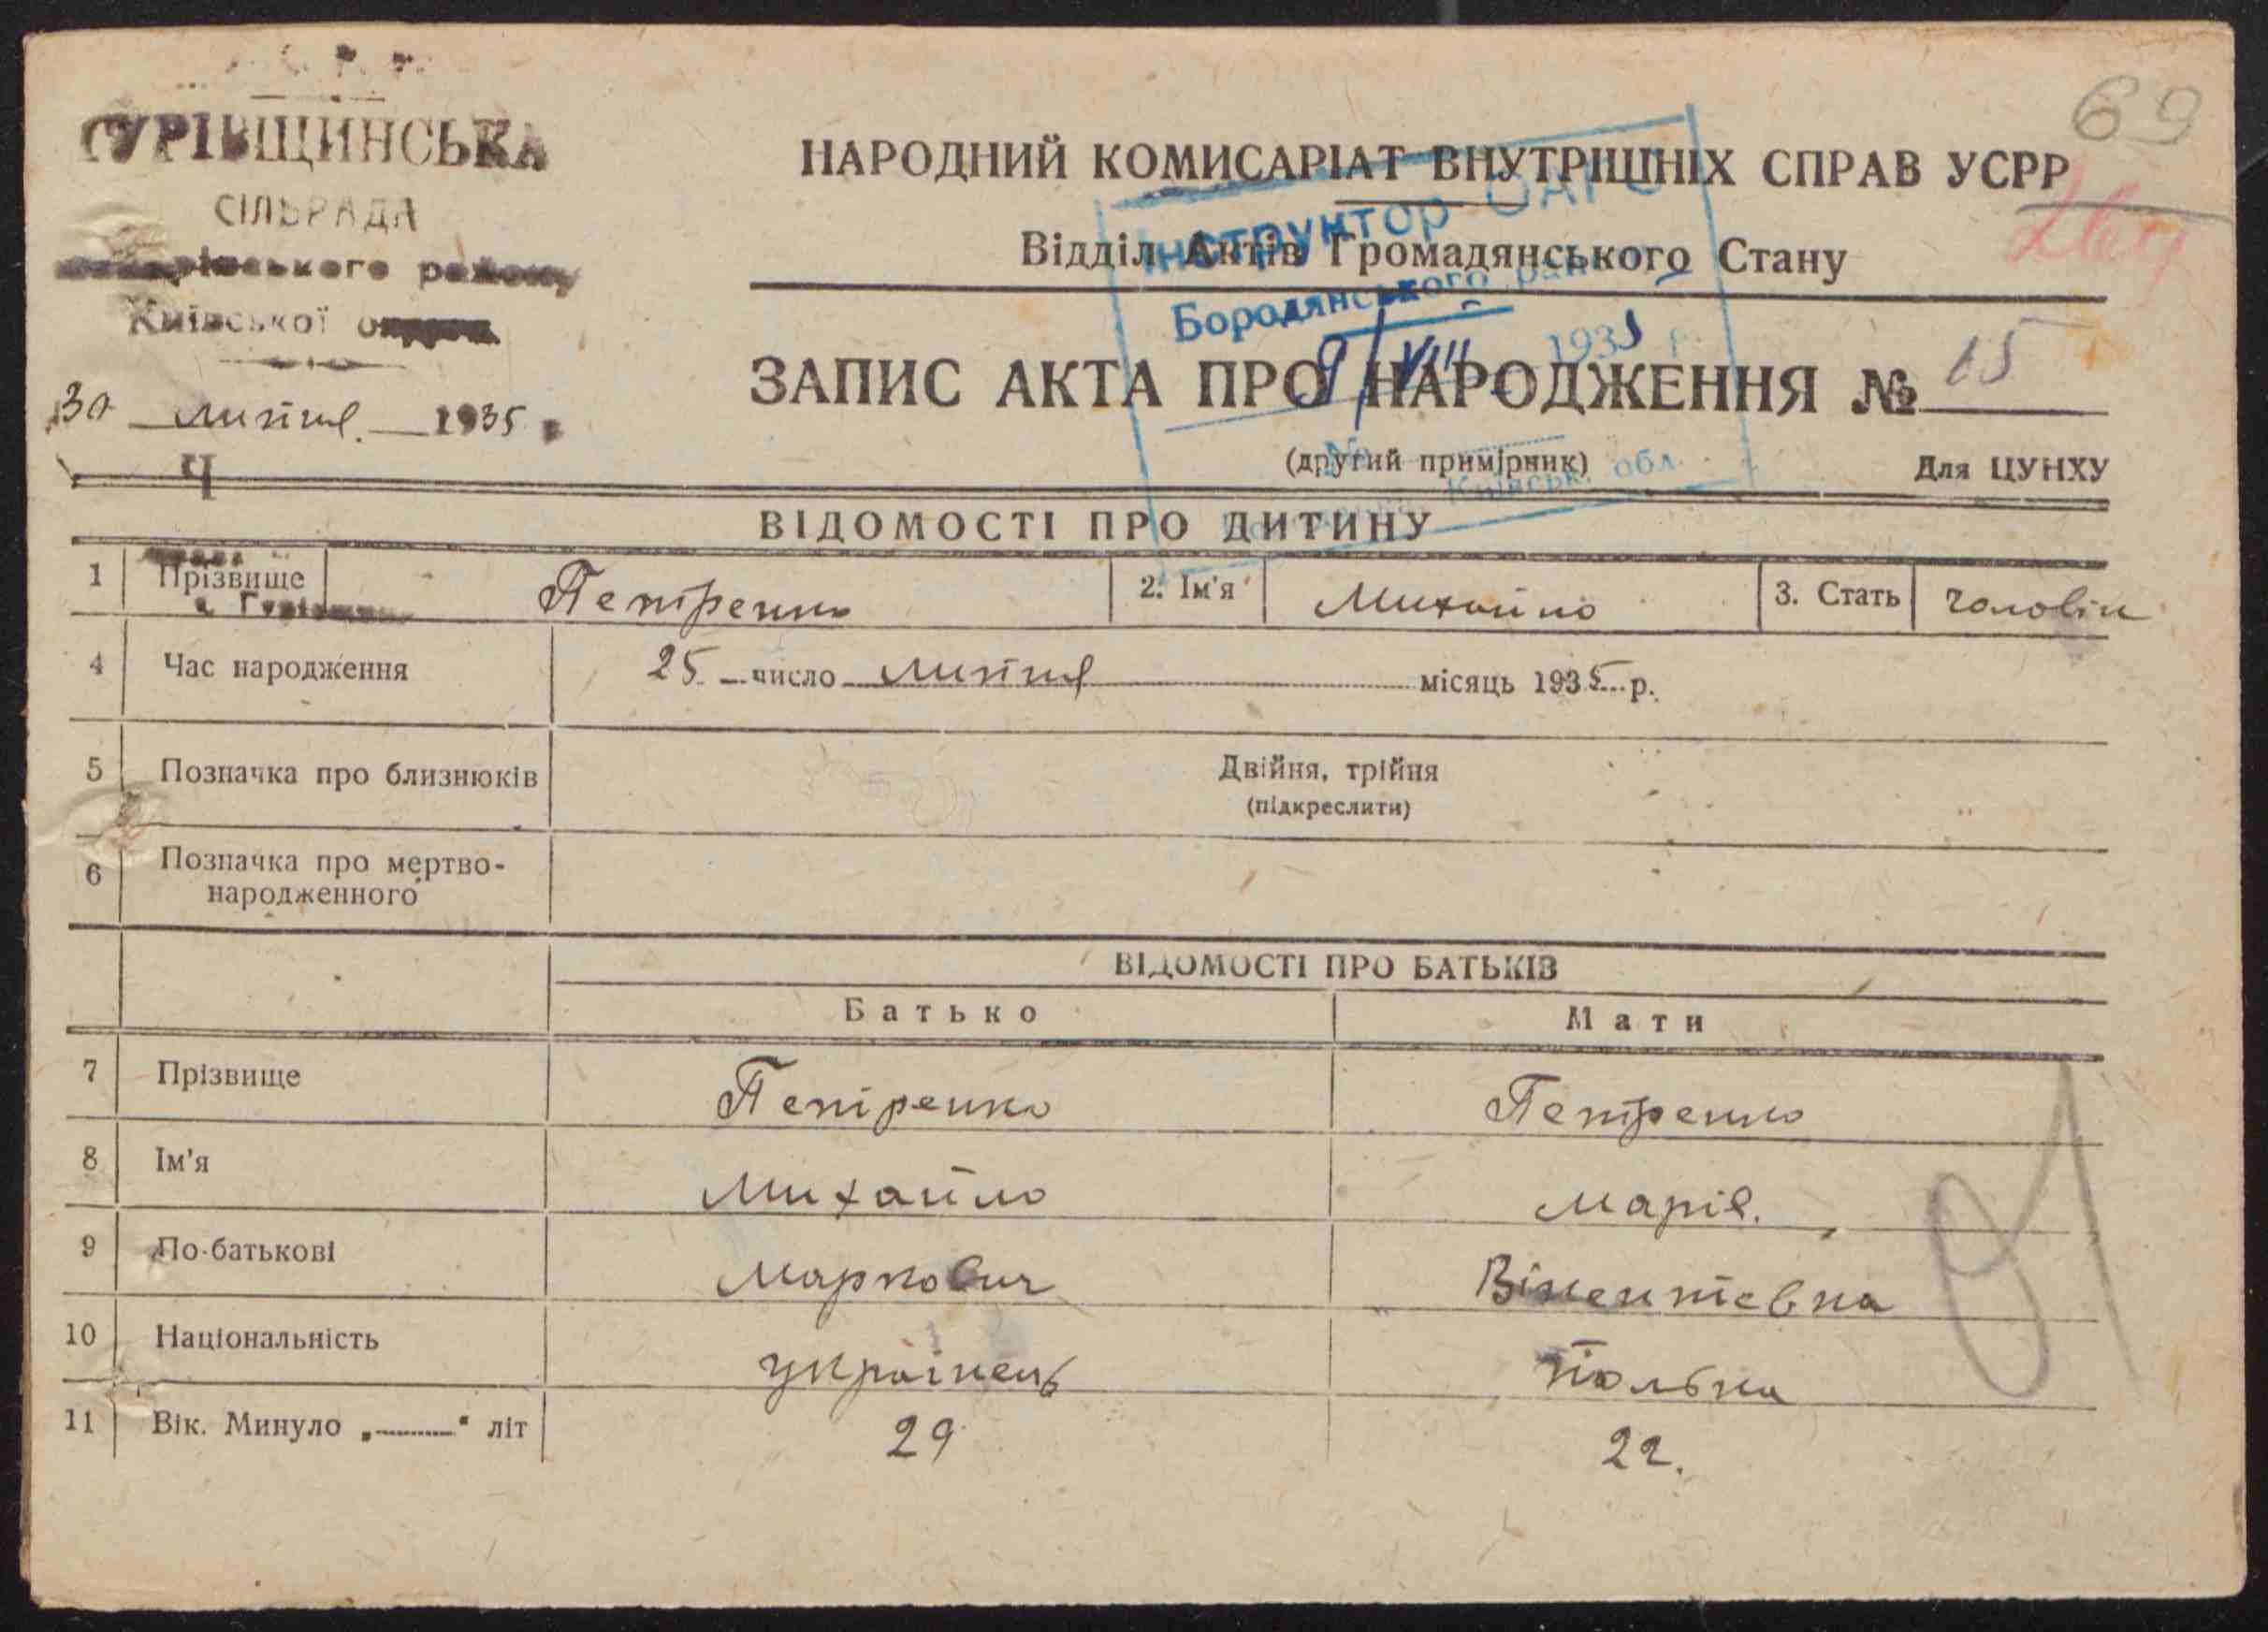 69
СІЛЬРАДА
Київської
30 липня 1935
Ч
НАРОДНИЙ КОМИСАРІАТ ВНУТРІШНІХ СПРАВ УСРР
Відділ Актів Громадянського Стану
Інструктор
Бородянського
9/VIII 1935 р.
обл.
ЗАПИС АКТА ПРО НАРОДЖЕННЯ № 15
(другий примірник)
Для ЦУНХУ
ВІДОМОСТІ ПРО ДИТИНУ
1 Прізвище Петренко 2. Ім'я Михайло 3. Стать чоловік
4 Час народження 25 число липня місяць 1935 р.
5 Позначка про близнюків Двійня, трійня
(підкреслити)
6 Позначка про мертво-
народженного
ВІДОМОСТІ ПРО БАТЬКІВ
Батько Мати
7 Прізвище Петренко Петренко
8 Ім'я Михайло Марія.
9 По-батькові Маркович Вікентієвна
10 Національність українець полька
11 Вік. Минуло „ “ літ 29 22.